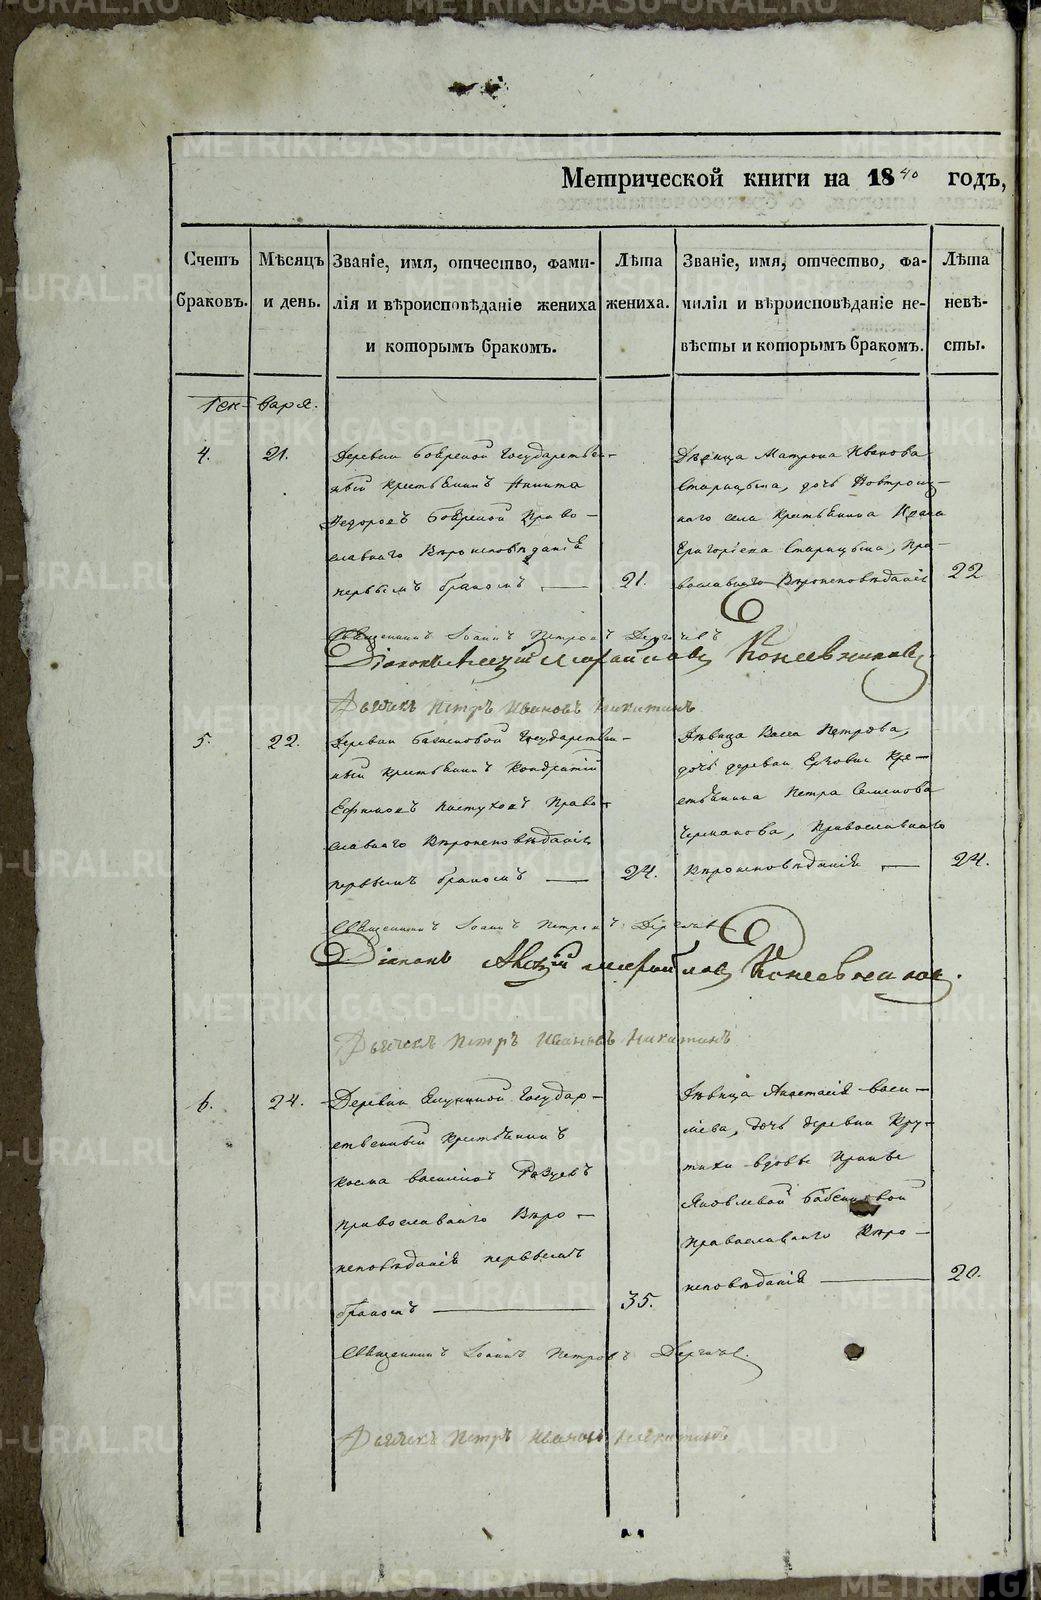 Метрической книги на 1840 годъ,
Счетъ браковъ.
Мѣсяцъ и день.
Званіе, имя, отчество, фами-
лія и вѣроисповѣданіе жениха
и которымъ бракомъ.
Лѣта
жениха.
Званіе, имя, отчество, фа-
милія и вѣроисповѣданіе не-
вѣсты и которымъ бракомъ.
Лѣта
невѣ-
сты.
Генваря.
4.
21.
Деревни Боѣрской Государствен-
ный крестьянинъ Никита
Ѳедоровъ Право-
славнаго Вѣроисповѣданія
первымъ бракомъ
21.
Дѣвица Матрона Иванова
Старицына, дочь
наго села крестьянина Ивана
Григорьева Старицына, Пра-
вославнаго Вѣроисповѣданія
22
Священникъ Іоаннъ Петровъ Дергачевъ
Діаконъ Алексій Михайловъ Кожевниковъ
Дьячекъ Петръ Ивановъ Никитинъ
5.
22.
Деревни Государствен-
ный крестьянинъ Кондратій
Ефимовъ Пастуховъ Право-
славнаго Вѣроисповѣданія
первымъ бракомъ
24.
Дѣвица Васса Петрова,
дочь деревни Кре-
стьянина Петра Семенова
Черманова, Православнаго
Вѣроисповѣданія
24.
Священникъ Іоаннъ Петровъ
Діаконъ Алексій Михайловъ Кожевниковъ.
Дьячекъ Петръ Ивановъ Никитинъ
6.
24.
Деревни Государ-
ственный крестьянинъ
Косма Васильевъ
православнаго Вѣро-
исповѣданія первымъ
бракомъ
35.
Дѣвица Анастасія Васи-
льева, дочь деревни Кру-
тихи вдовы Ирины
Яковлевой
Православнаго Вѣро-
исповѣданія
20.
Священникъ Іоаннъ Петровъ Дергачевъ.
Дьячекъ Петръ Ивановъ Никитинъ
METRIKI.GASO-URAL.RU